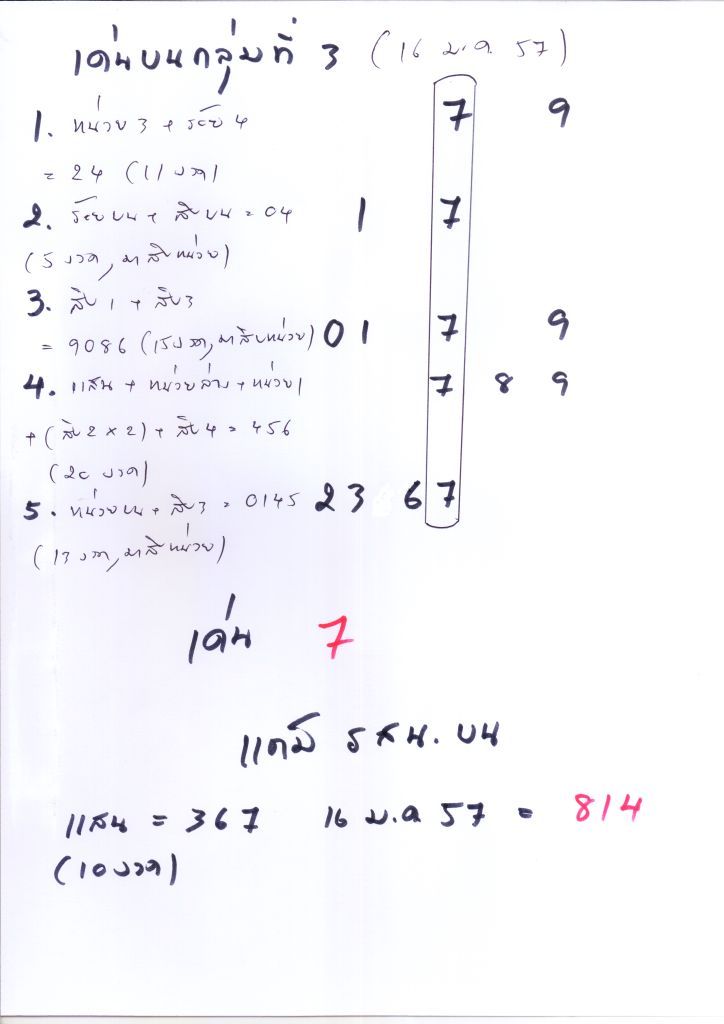 เด่นบนกลุ่มที่ 3 (16 ม.ค. 57)
1. หน่วย 3 + ร้อย 4 7 9
= 24 (11 งวด)
2. ร้อยบน + สิบบน = 04 1 7
(5 งวด, มาสิบหน่วย)
3. สิบ 1 + สิบ 3
= 9086 (15 งวด, มาสิบหน่วย) 0 1 7 9
4. แสน + หน่วยล่าง + หน่วย 1 7 8 9
+ (สิบ 2 x 2) + สิบ 4 = 456
(20 งวด)
5. หน่วยบน + สิบ 3 = 0145 2 3 6 7
(13 งวด, มาสิบหน่วย)
เด่น 7
แถม รสน. บน
แสน = 367 16 ม.ค. 57 = 814
(10 งวด)